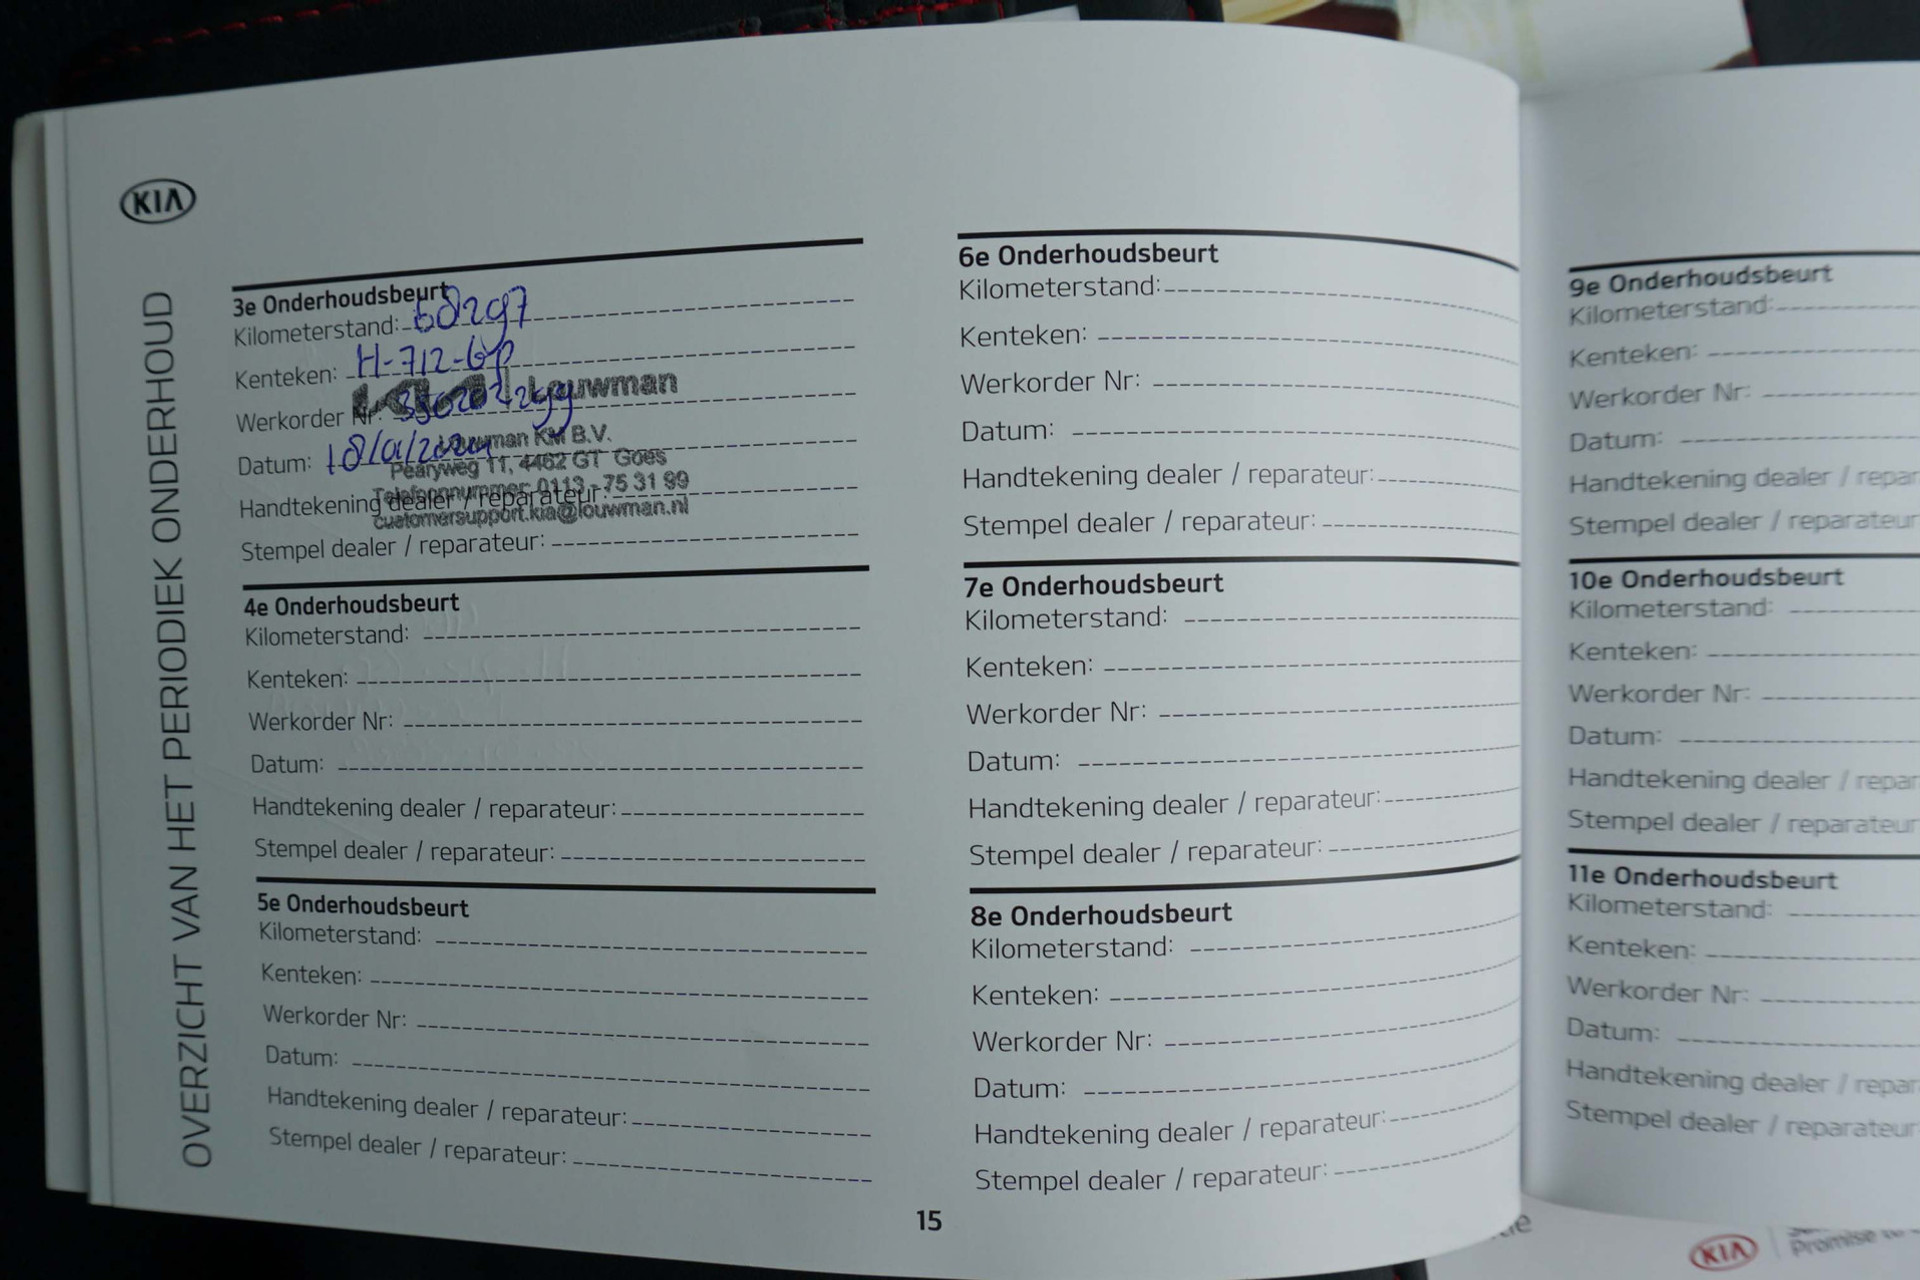 KIA
OVERZICHT VAN HET PERIODIEK ONDERHOUD
3e Onderhoudsbeurt
Kilometerstand: 68297
Kenteken: H-712-GP
Werkorder Nr:
Louwman
Datum: 18/01/2024
Louwman KM B.V.
Pearyweg 11, 4462 GT Goes
Telefoonnummer: 0113 - 75 31 99
Handtekening dealer / reparateur:
customersupport.kia@louwman.nl
Stempel dealer / reparateur:
4e Onderhoudsbeurt
Kilometerstand:
Kenteken:
Werkorder Nr:
Datum:
Handtekening dealer / reparateur:
Stempel dealer / reparateur:
5e Onderhoudsbeurt
Kilometerstand:
Kenteken:
Werkorder Nr:
Datum:
Handtekening dealer / reparateur:
Stempel dealer / reparateur:
6e Onderhoudsbeurt
Kilometerstand:
Kenteken:
Werkorder Nr:
Datum:
Handtekening dealer / reparateur:
Stempel dealer / reparateur:
7e Onderhoudsbeurt
Kilometerstand:
Kenteken:
Werkorder Nr:
Datum:
Handtekening dealer / reparateur:
Stempel dealer / reparateur:
8e Onderhoudsbeurt
Kilometerstand:
Kenteken:
Werkorder Nr:
Datum:
Handtekening dealer / reparateur:
Stempel dealer / reparateur:
15
9e Onderhoudsbeurt
Kilometerstand:
Kenteken:
Werkorder Nr:
Datum:
Handtekening dealer / repar
Stempel dealer / reparateur
10e Onderhoudsbeurt
Kilometerstand:
Kenteken:
Werkorder Nr:
Datum:
Handtekening dealer / repar
Stempel dealer / reparateur
11e Onderhoudsbeurt
Kilometerstand:
Kenteken:
Werkorder Nr:
Datum:
Handtekening dealer / repar
Stempel dealer / reparateur
KIA
Promise to